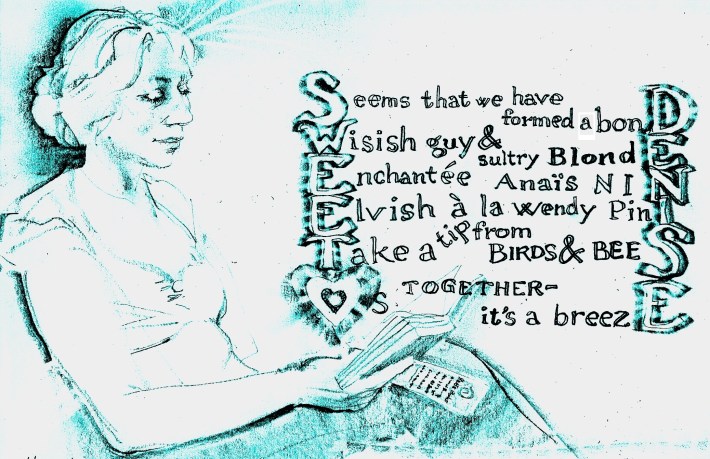 Seems that we have
formed a bonD
Wisish guy &
sultry BlondE
Enchantée Anaïs NIN
Elvish à la Wendy PinI
Take a tip from
BIRDS & BEES
s TOGETHER-
it's a breezE